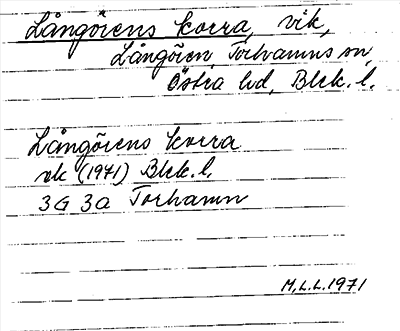 Långörens korra, vik,
Långören, Torhamns sn,
Östra hd, Blek. l.
Långörens korra
vik (1971) Blek. l.
3G 3a Torhamn
M.L.L. 1971